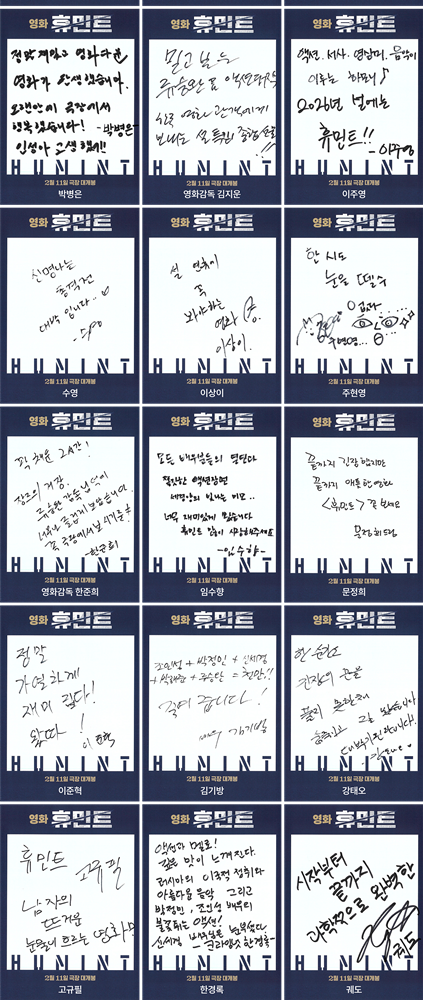 영화 휴민트
정말 재밌고 영화다운
영화가 탄생했습니다.
오랜만에 극장에서
행복했습니다! -박병은-
인성아 고생했어!!
HUMINT
2월 11일 극장 대개봉
박병은
영화 휴민트
믿고 보는
류승완표 액션대작
한국 영화 관객에게
보내는 설 특집 종합선물!!
HUMINT
2월 11일 극장 대개봉
영화감독 김지운
영화 휴민트
액션. 서사. 연남미. 음악이
이루는 하모니♪
2026년 설에는
휴민트!!
-이주영
HUMINT
2월 11일 극장 대개봉
이주영
신명나는
총격전
대박입니다..
HUMINT
2월 11일 극장 대개봉
수영
설 연휴에
꼭
봐야하는
영화
이상이.
HUMINT
2월 11일 극장 대개봉
이상이
한 시도
눈을 뗄 수
없다
주현영...
HUMINT
2월 11일 극장 대개봉
주현영
영화 휴민트
꽉 채운 2시간!
장르의 거장
류승완 감독님 덕에
너무나 즐겁게 보았습니다.
꼭 극장에서 보시기를!
한준희
HUMINT
2월 11일 극장 대개봉
영화감독 한준희
영화 휴민트
모든 배우분들의 열연과
짜릿한 액션장면
세경양의 빛나는 미모..
너무 재미있게 봤습니다
휴민트 많이 사랑해주세요
-임수향-
HUMINT
2월 11일 극장 대개봉
임수향
영화 휴민트
끝까지 긴장했지만
끝까지 애틋한 영화
<휴민트> 꼭 보세요
문정희드림
HUMINT
2월 11일 극장 대개봉
문정희
영화 휴민트
정말
가열하게
재미있다!
왔따!
이준혁
HUMINT
2월 11일 극장 대개봉
이준혁
영화 휴민트
조인성 + 박정민 + 신세경
+ 박해준 + 류승완 = 천만!!
죽여줍니다!
배우 김기방
HUMINT
2월 11일 극장 대개봉
김기방
영화 휴민트
한 순간도
긴장의 끈을
놓지 못한채
숨죽이고 그걸 봤습니다
대박기원합니다!
HUMINT
2월 11일 극장 대개봉
강태오
영화 휴민트
휴민트 고규필
남자의
뜨거운
눈물이 흐르는 영화
HUMINT
2월 11일 극장 대개봉
고규필
영화 휴민트
액션과 멜로!
깊은 맛이 느껴진다.
러시아의 이국적 정취와
아름다운 음악 그리고
박정민, 조인성 배우의
불꽃튀는 액션!
신세경 배우님은 눈부셨다
-크라잉넛 한경록-
HUMINT
2월 11일 극장 대개봉
한경록
영화 휴민트
시작부터
끝까지
과학적으로 완벽한
궤도
HUMINT
2월 11일 극장 대개봉
궤도